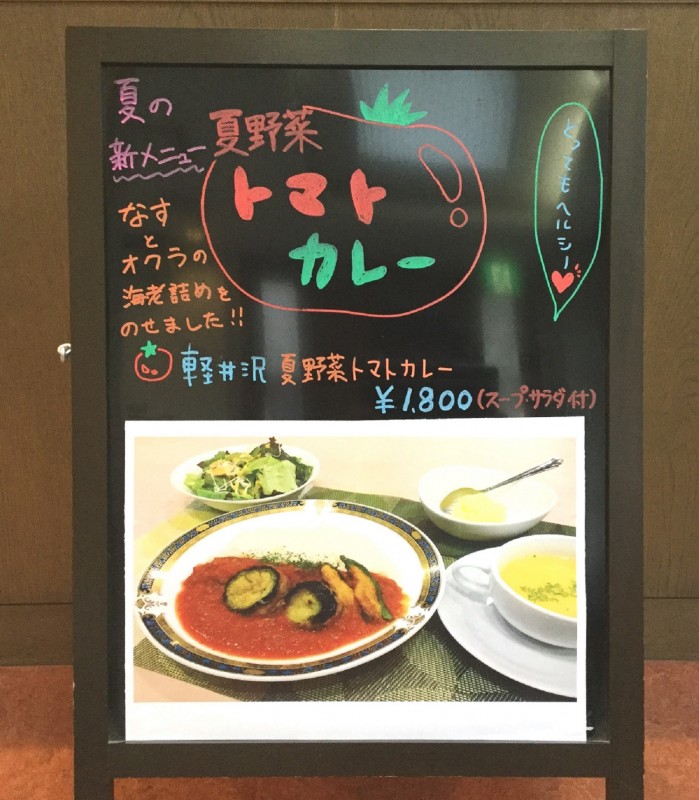 夏の
新メニュー
夏野菜
トマト
カレー
とってもヘルシー
なす
と
オクラの
海老詰めを
のせました!!
軽井沢 夏野菜トマトカレー
¥1,800(スープ・サラダ付)